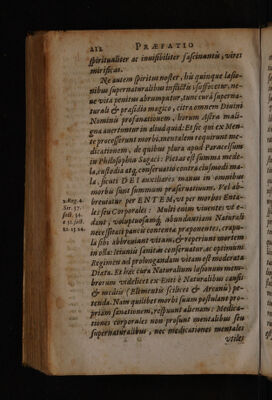 212 PRÆFATIO
spiritualiter ac invisibiliter fascinantis, vires
mirificas.
Ne autem spiritus noster, his quinque læsio-
nibus supernaturalibus inflictis suffocetur, ne-
ue vita penitus abrumpatur, tunc curâ superna-
turali & præsidio magico, citra omnem Divini
Nominis profanationem, horum Astra mali-
gna auertuntur in aliud quid: Et sic qui ex Men-
te processerunt morbi, mentalem requirunt me-
dicationem, de quibus plura apud Paracelsum
in Philosophia Sagaci: Pietas est summa mede-
la, custodia atq; conservatio contra eiusmodi ma-
la, sicuti DEI auxiliares manus in omnibus
morbis sunt summum præservatiuum. Vel ab-
breviatur per ENTEM, ut per morbos Enta-
les seu Corporales: Multi enim viuentes vt e-
dant, voluptuosamq; abundantiam Naturali
necessitati paucis contenta præponentes, crapu-
la sibi abbreviant vitam, & reperiunt mortem
in ollâ: Ieiuniis sanitas conservatur, & optimum
Regimen ad prolongandum vitam est moderata
Diæta. Et hæc cura Naturalium læsionum mem-
brorum videlicet ex Enti è Naturalibus causis
& mediis (Elementis scilicet & Arcanis) pe-
tenda. Nam quilibet morbi suam postulant pro-
priam sanationem, respuunt alienam: Medica-
tiones corporales non prosunt mentalibus seu
supernaturalibus, nec medicationes mentales
utiles
2. Reg. 4.
Sir. 37.